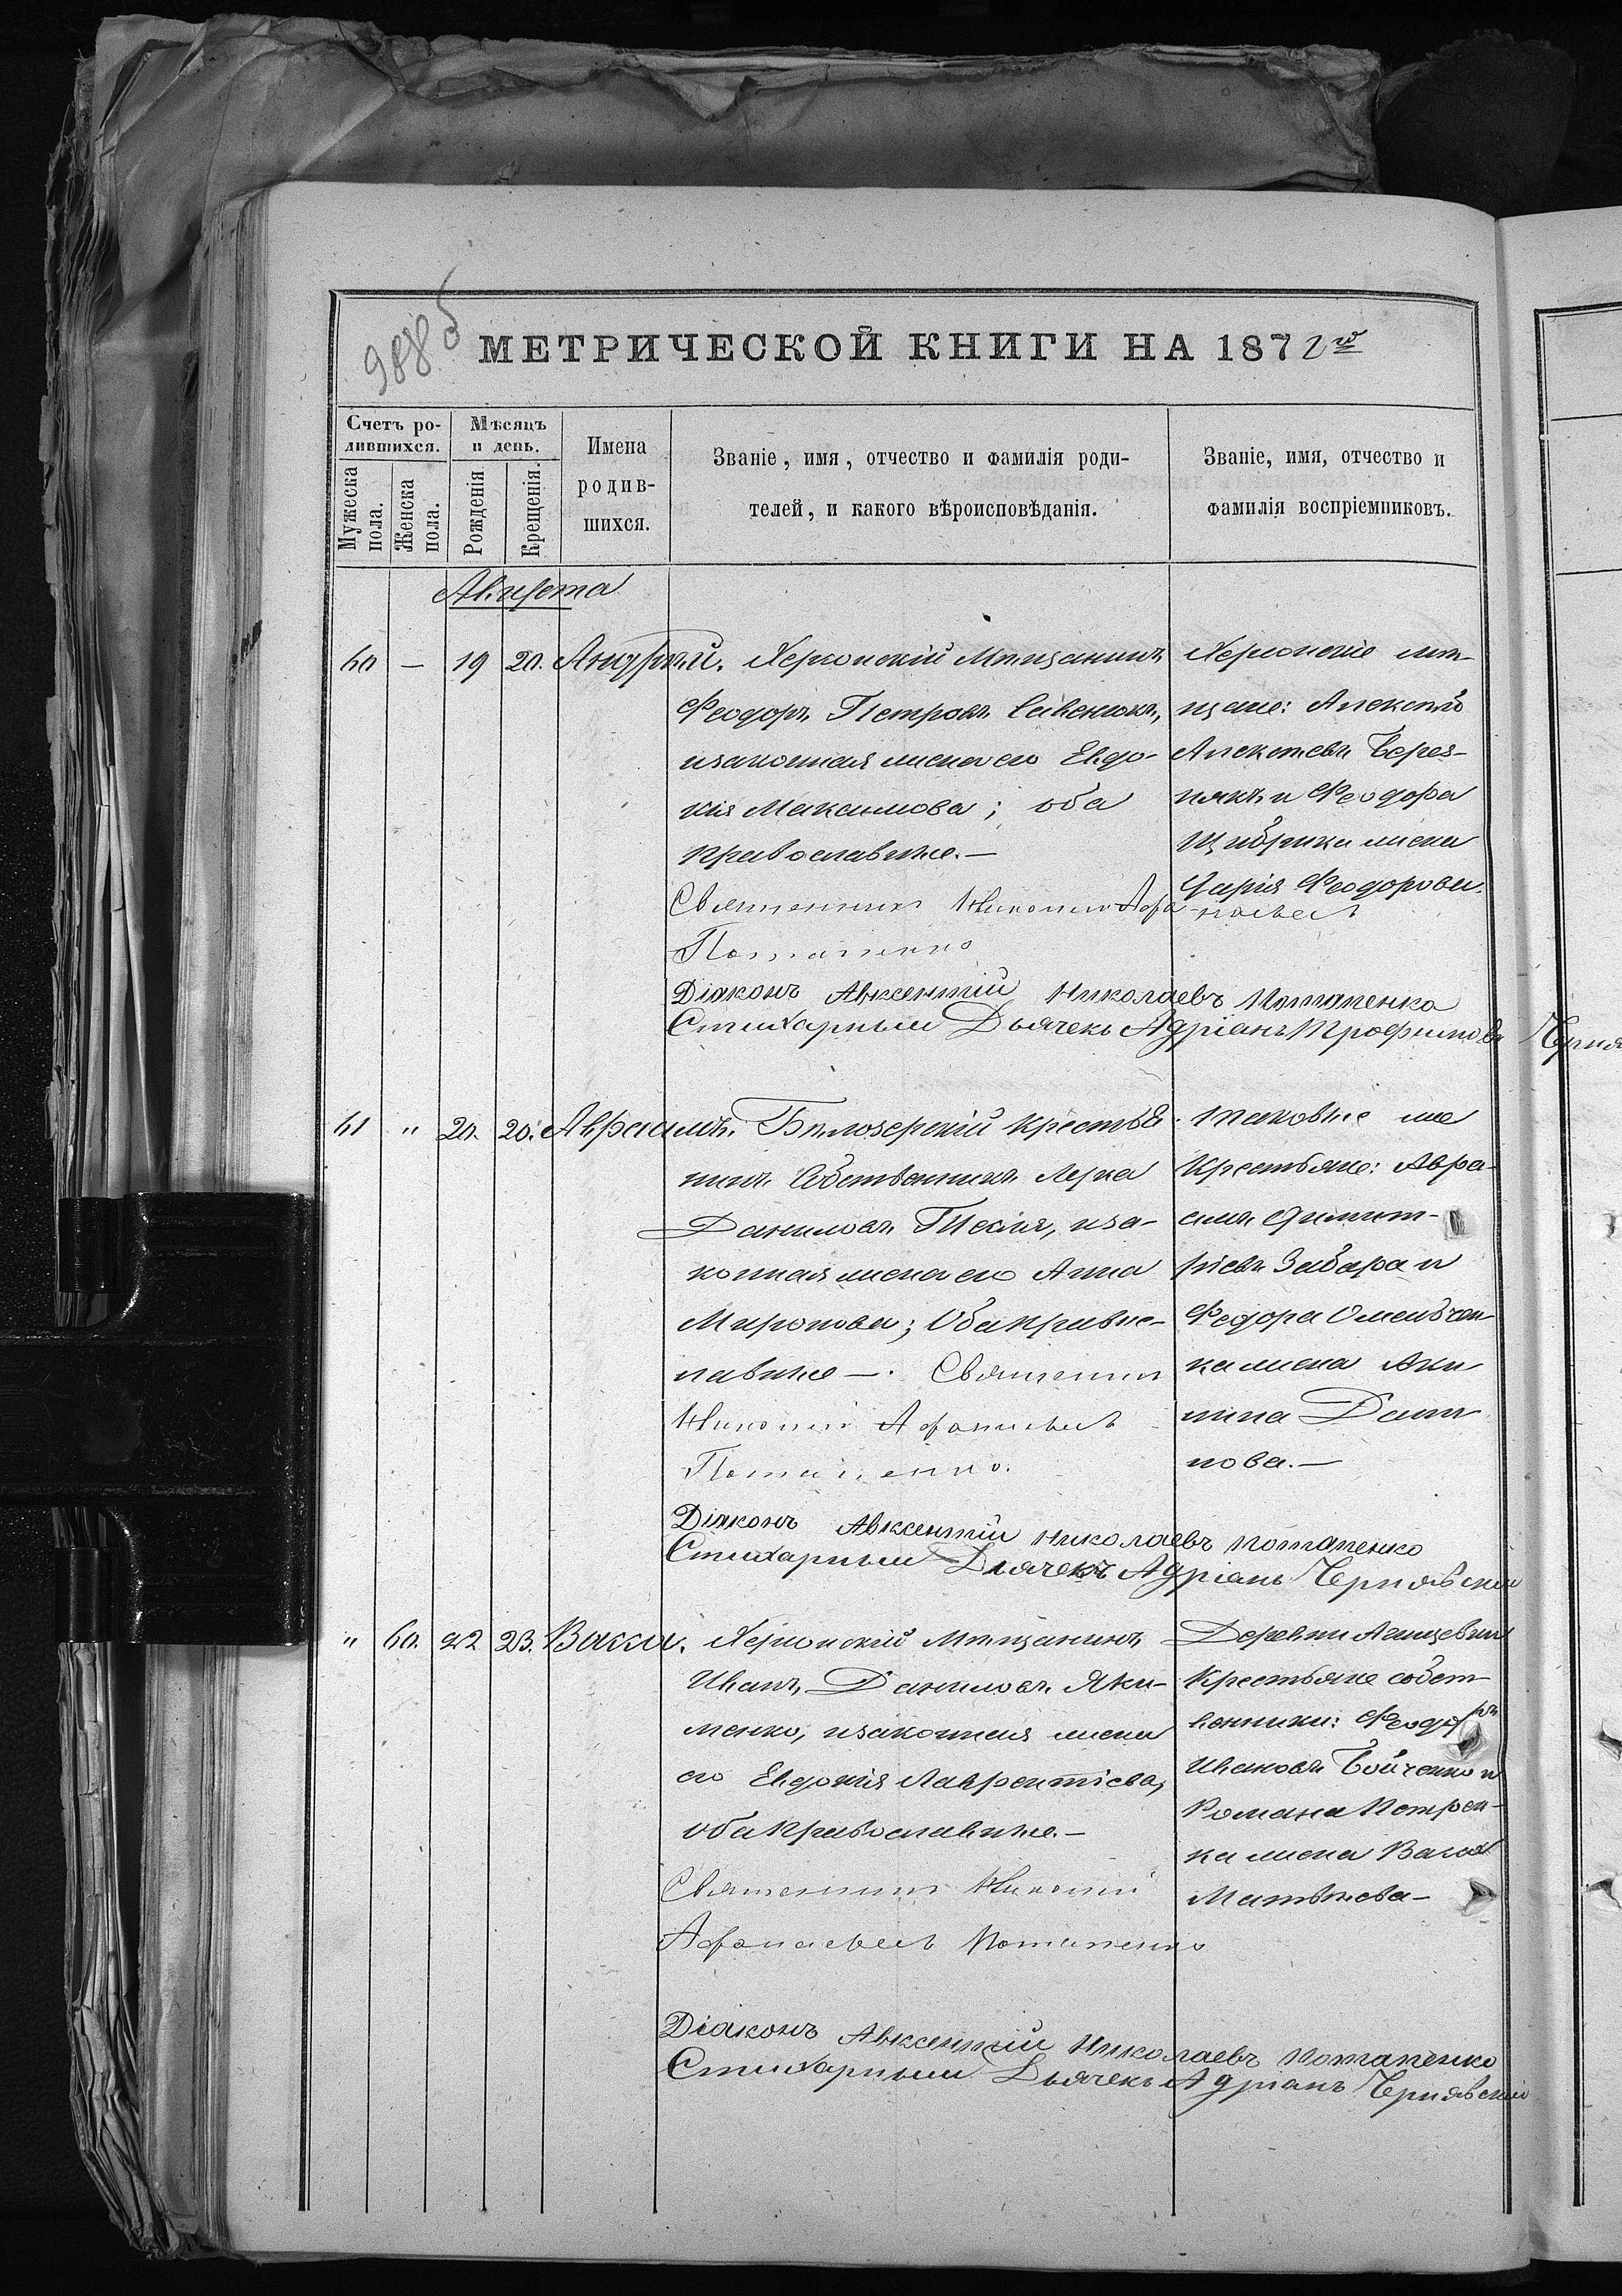 988 б
МЕТРИЧЕСКОЙ КНИГИ НА 1872 й
Счетъ ро-
дившихся.
Мѣсяцъ
и день.
Мужеска
пола.
Женска
пола.
Рожденія
Крещенія.
Имена
родив-
шихся.
Званіе, имя, отчество и фамилія роди-
телей, и какого вѣроисповѣданія.
Званіе, имя, отчество и
фамилія воспріемниковъ.
Августа
60 — 19 20. Андрей.
Херсонскій Мѣщанинъ
Феодоръ Петровъ Савенюкъ,
изаконная жена его Евдо-
кія Максимова; оба
православные.—
Священникъ Николай Афанасьевъ
Потапенко
Діаконъ Авксентій Николаевъ Потапенко
Стихарный Дьячекъ Адріанъ Трофимовъ
Херсонскіе мѣ-
щане: Алексѣй
Алексѣевъ Берез-
някъ и Феодора
Щибрика жена
Дарія Феодорова.
61 " 20. 20. Авраамъ.
Бѣлозерскій Крестья-
нинъ Собственникъ Лука
Даниловъ, иза-
конная жена его Анна
Миронова; Оба правос-
лавные —. Священник
Николай Афанасьевъ
Потапенко.
Діаконъ Авксентій Николаевъ Потапенко
Стихарный Дьячекъ Адріанъ Чернявскій
таковые же
Крестьяне: Авра-
амъ Димит-
ріевъ Забара и
Федора Омельчен-
ка жена Аки-
лина
нова.—
" 60. 22 23. Васса.
Херсонскій Мѣщанинъ
Иванъ Даниловъ Яки-
менко, изаконная жена
его Евдокія Лаврентіева,
оба Православные.—
Священникъ Николай
Афанасьевъ Потапенко
Діаконъ Авксентій Николаевъ Потапенко
Стихарный Дьячекъ Адріанъ Чернявскій
Деревни
Крестьяне собст-
венники: Феодоръ
Ивановъ Бойченко и
Романа Петрен-
ка жена Васса
Матвѣева—